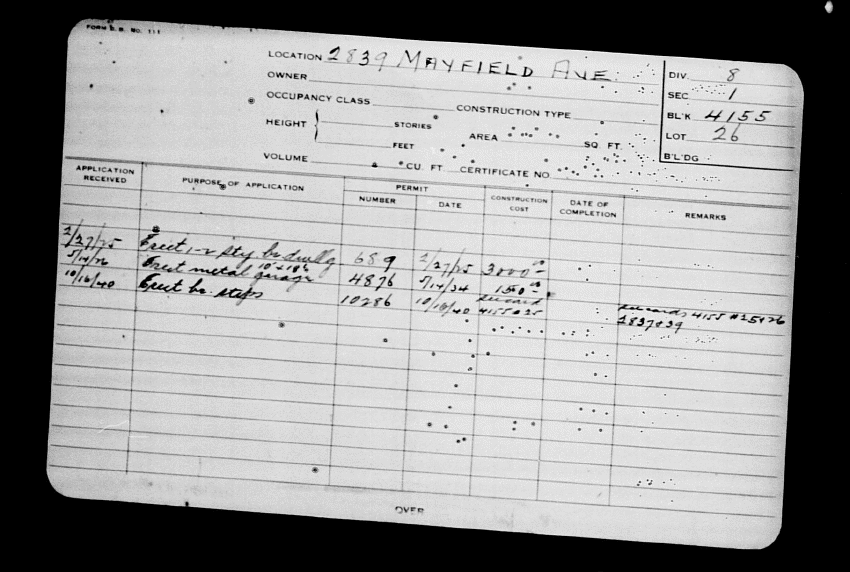 FORM B.B. NO. 111
LOCATION 2839 MAYFIELD AVE.
OWNER
OCCUPANCY CLASS CONSTRUCTION TYPE
HEIGHT STORIES AREA SQ. FT.
FEET
VOLUME CU. FT. CERTIFICATE NO
DIV. 8
SEC 1
BL'K 4155
LOT 26
B'L'DG
APPLICATION RECEIVED PURPOSE OF APPLICATION PERMIT NUMBER DATE CONSTRUCTION COST DATE OF COMPLETION REMARKS
2/27/25 Erect 1-2 sty br dwellg 689 2/27/25 3000 00
Erect metal garage 10'x18' 4876 150 00
10/16/40 Erect br. steps 10286 10/16/40 see card 4155 #25 see cards 4155 #25+26
2837+39
OVER